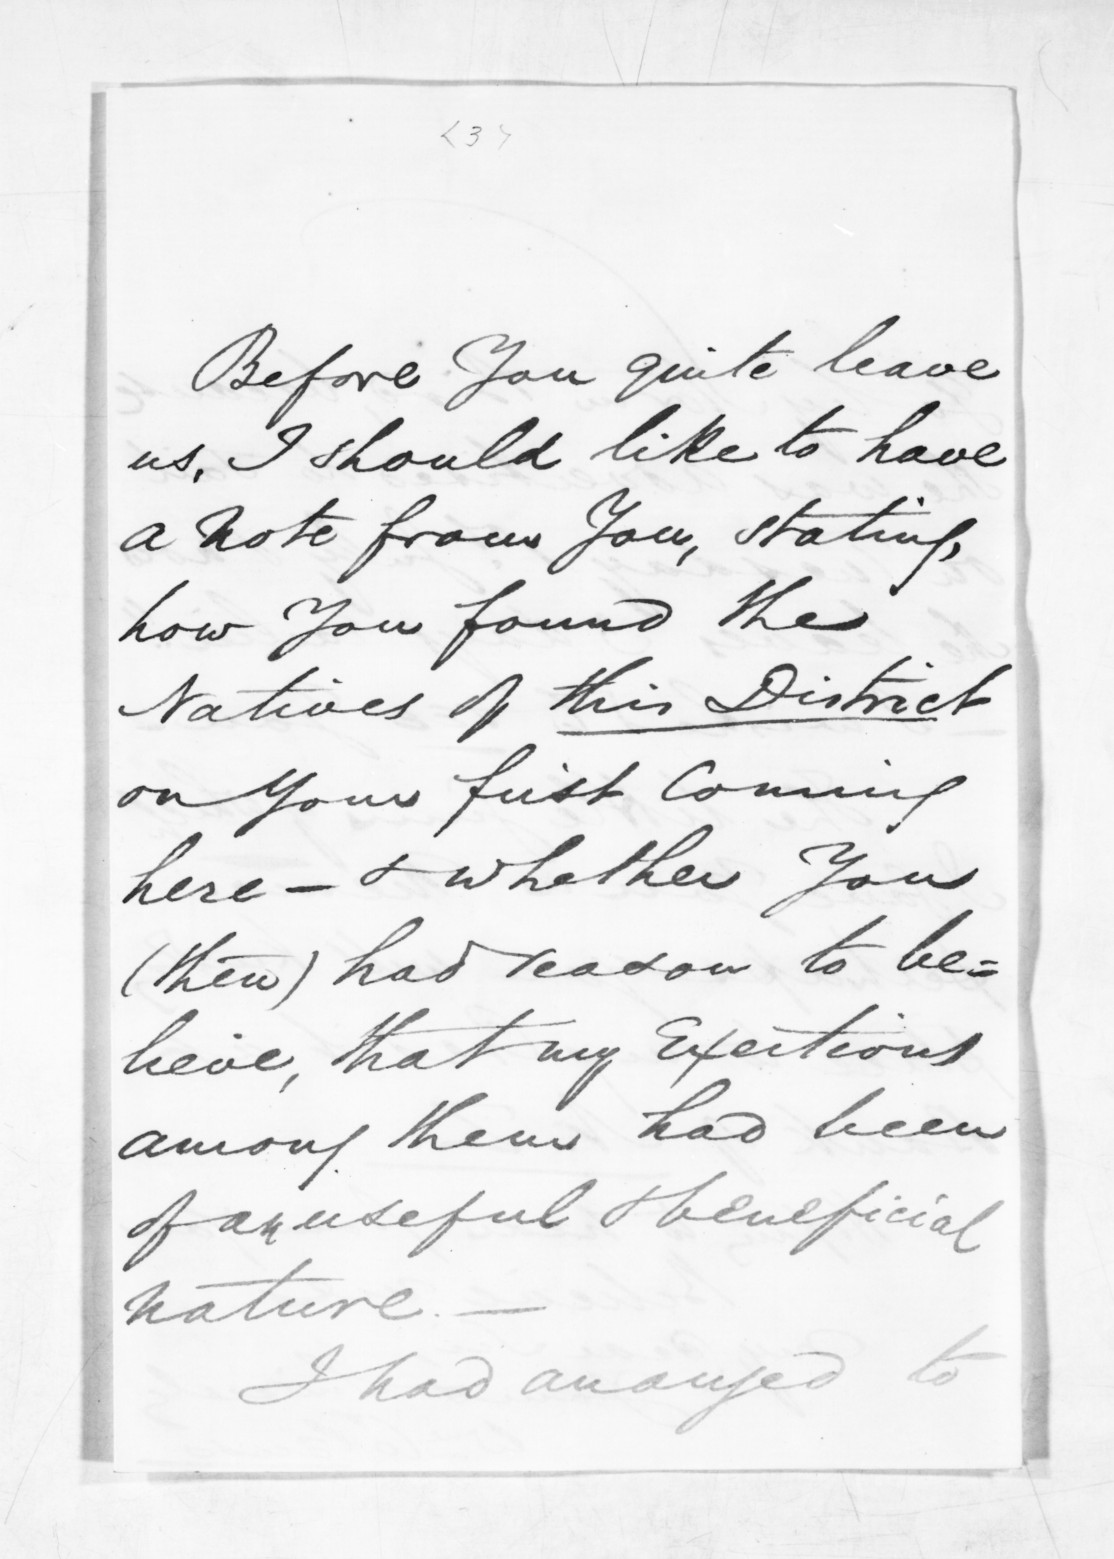 <3>
Before You quite leave
us, I should like to have
a note from You, stating,
how You found the
Natives of this District
on Your first Coming
here — & whether You
(then) had reason to be=
lieve, that my Exertions
among them had been
of an useful & beneficial
nature. —
I had arranged to